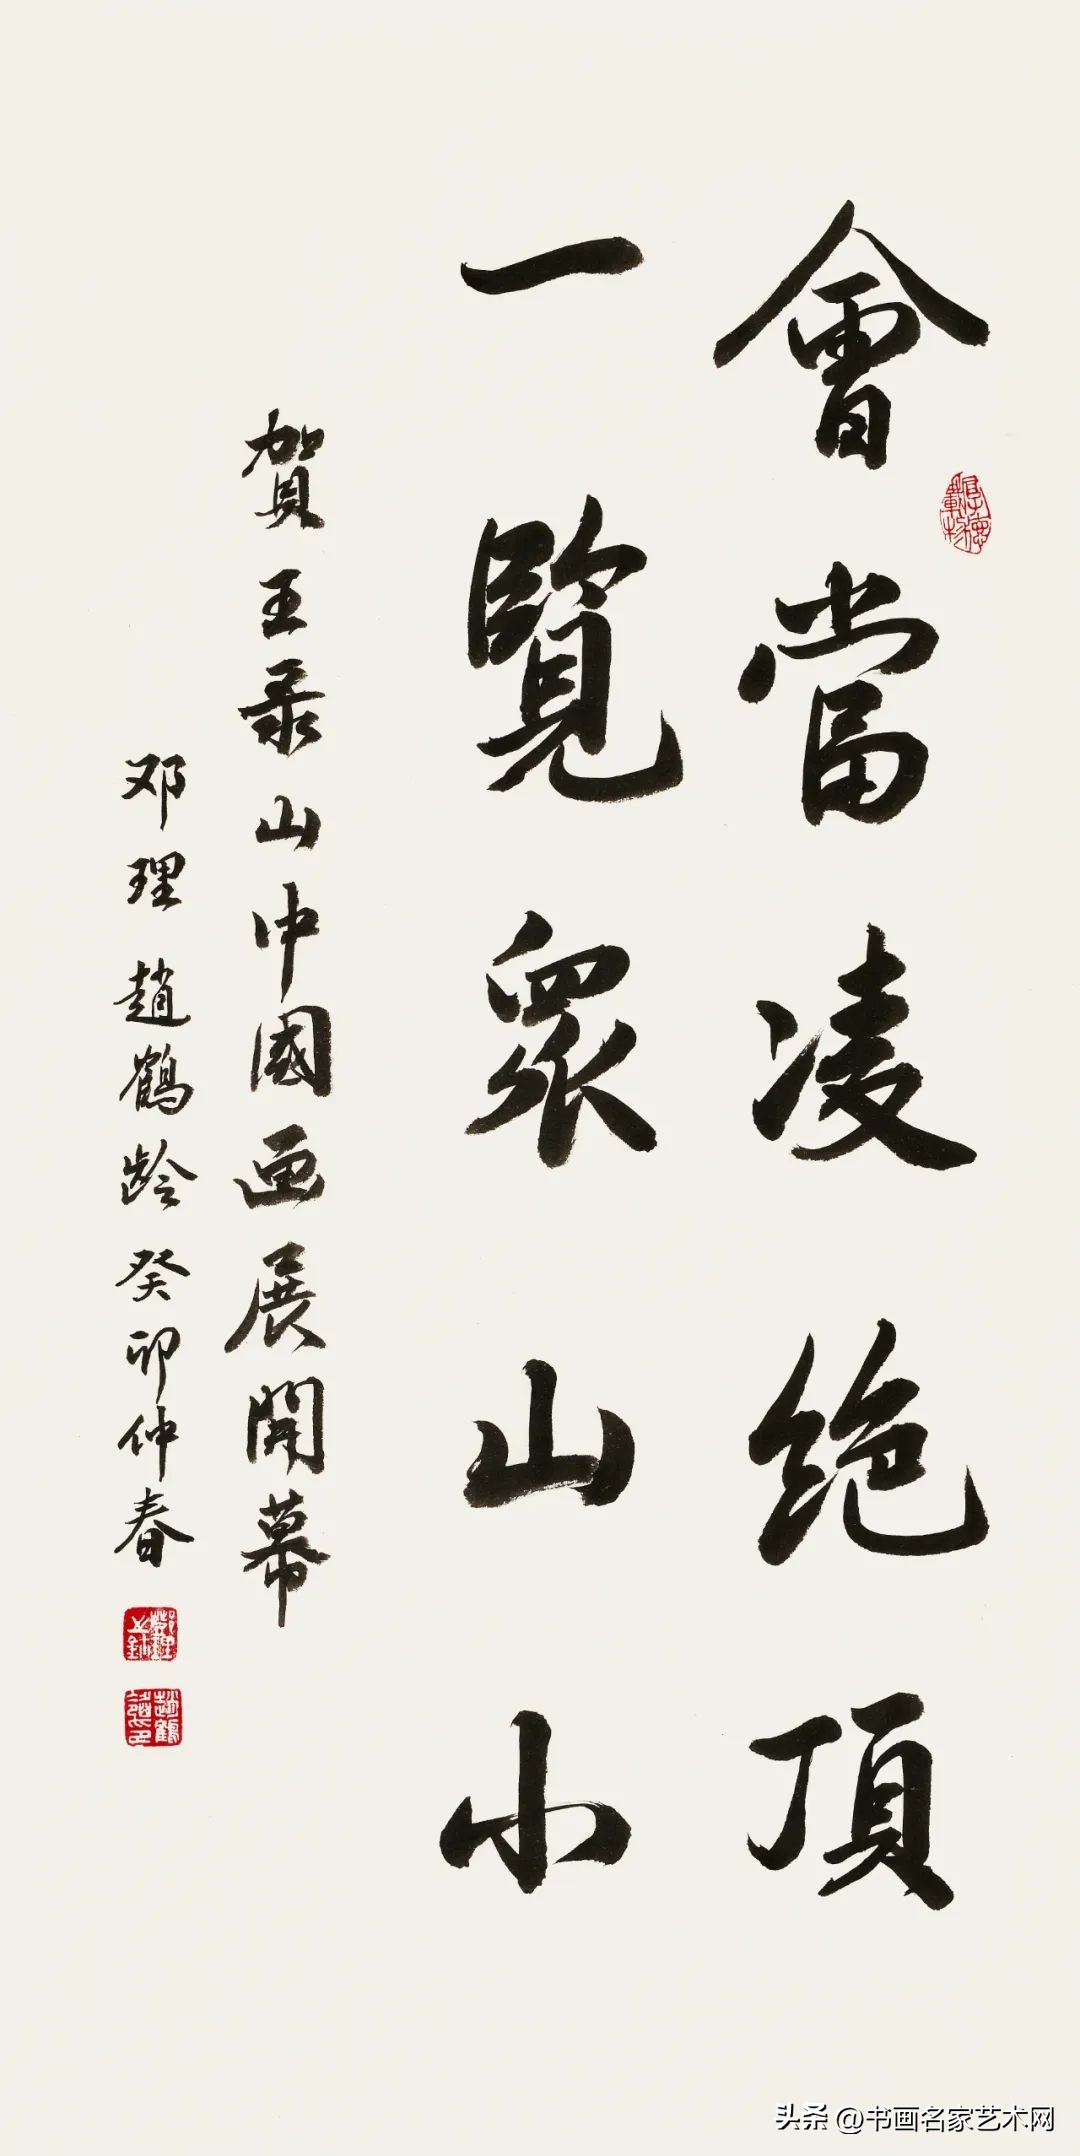 會當凌绝頂
一覽衆山小
賀王录山中國画展開幕
邓理 趙鶴龄 癸卯仲春
厚德載物
头条 @书画名家艺术网